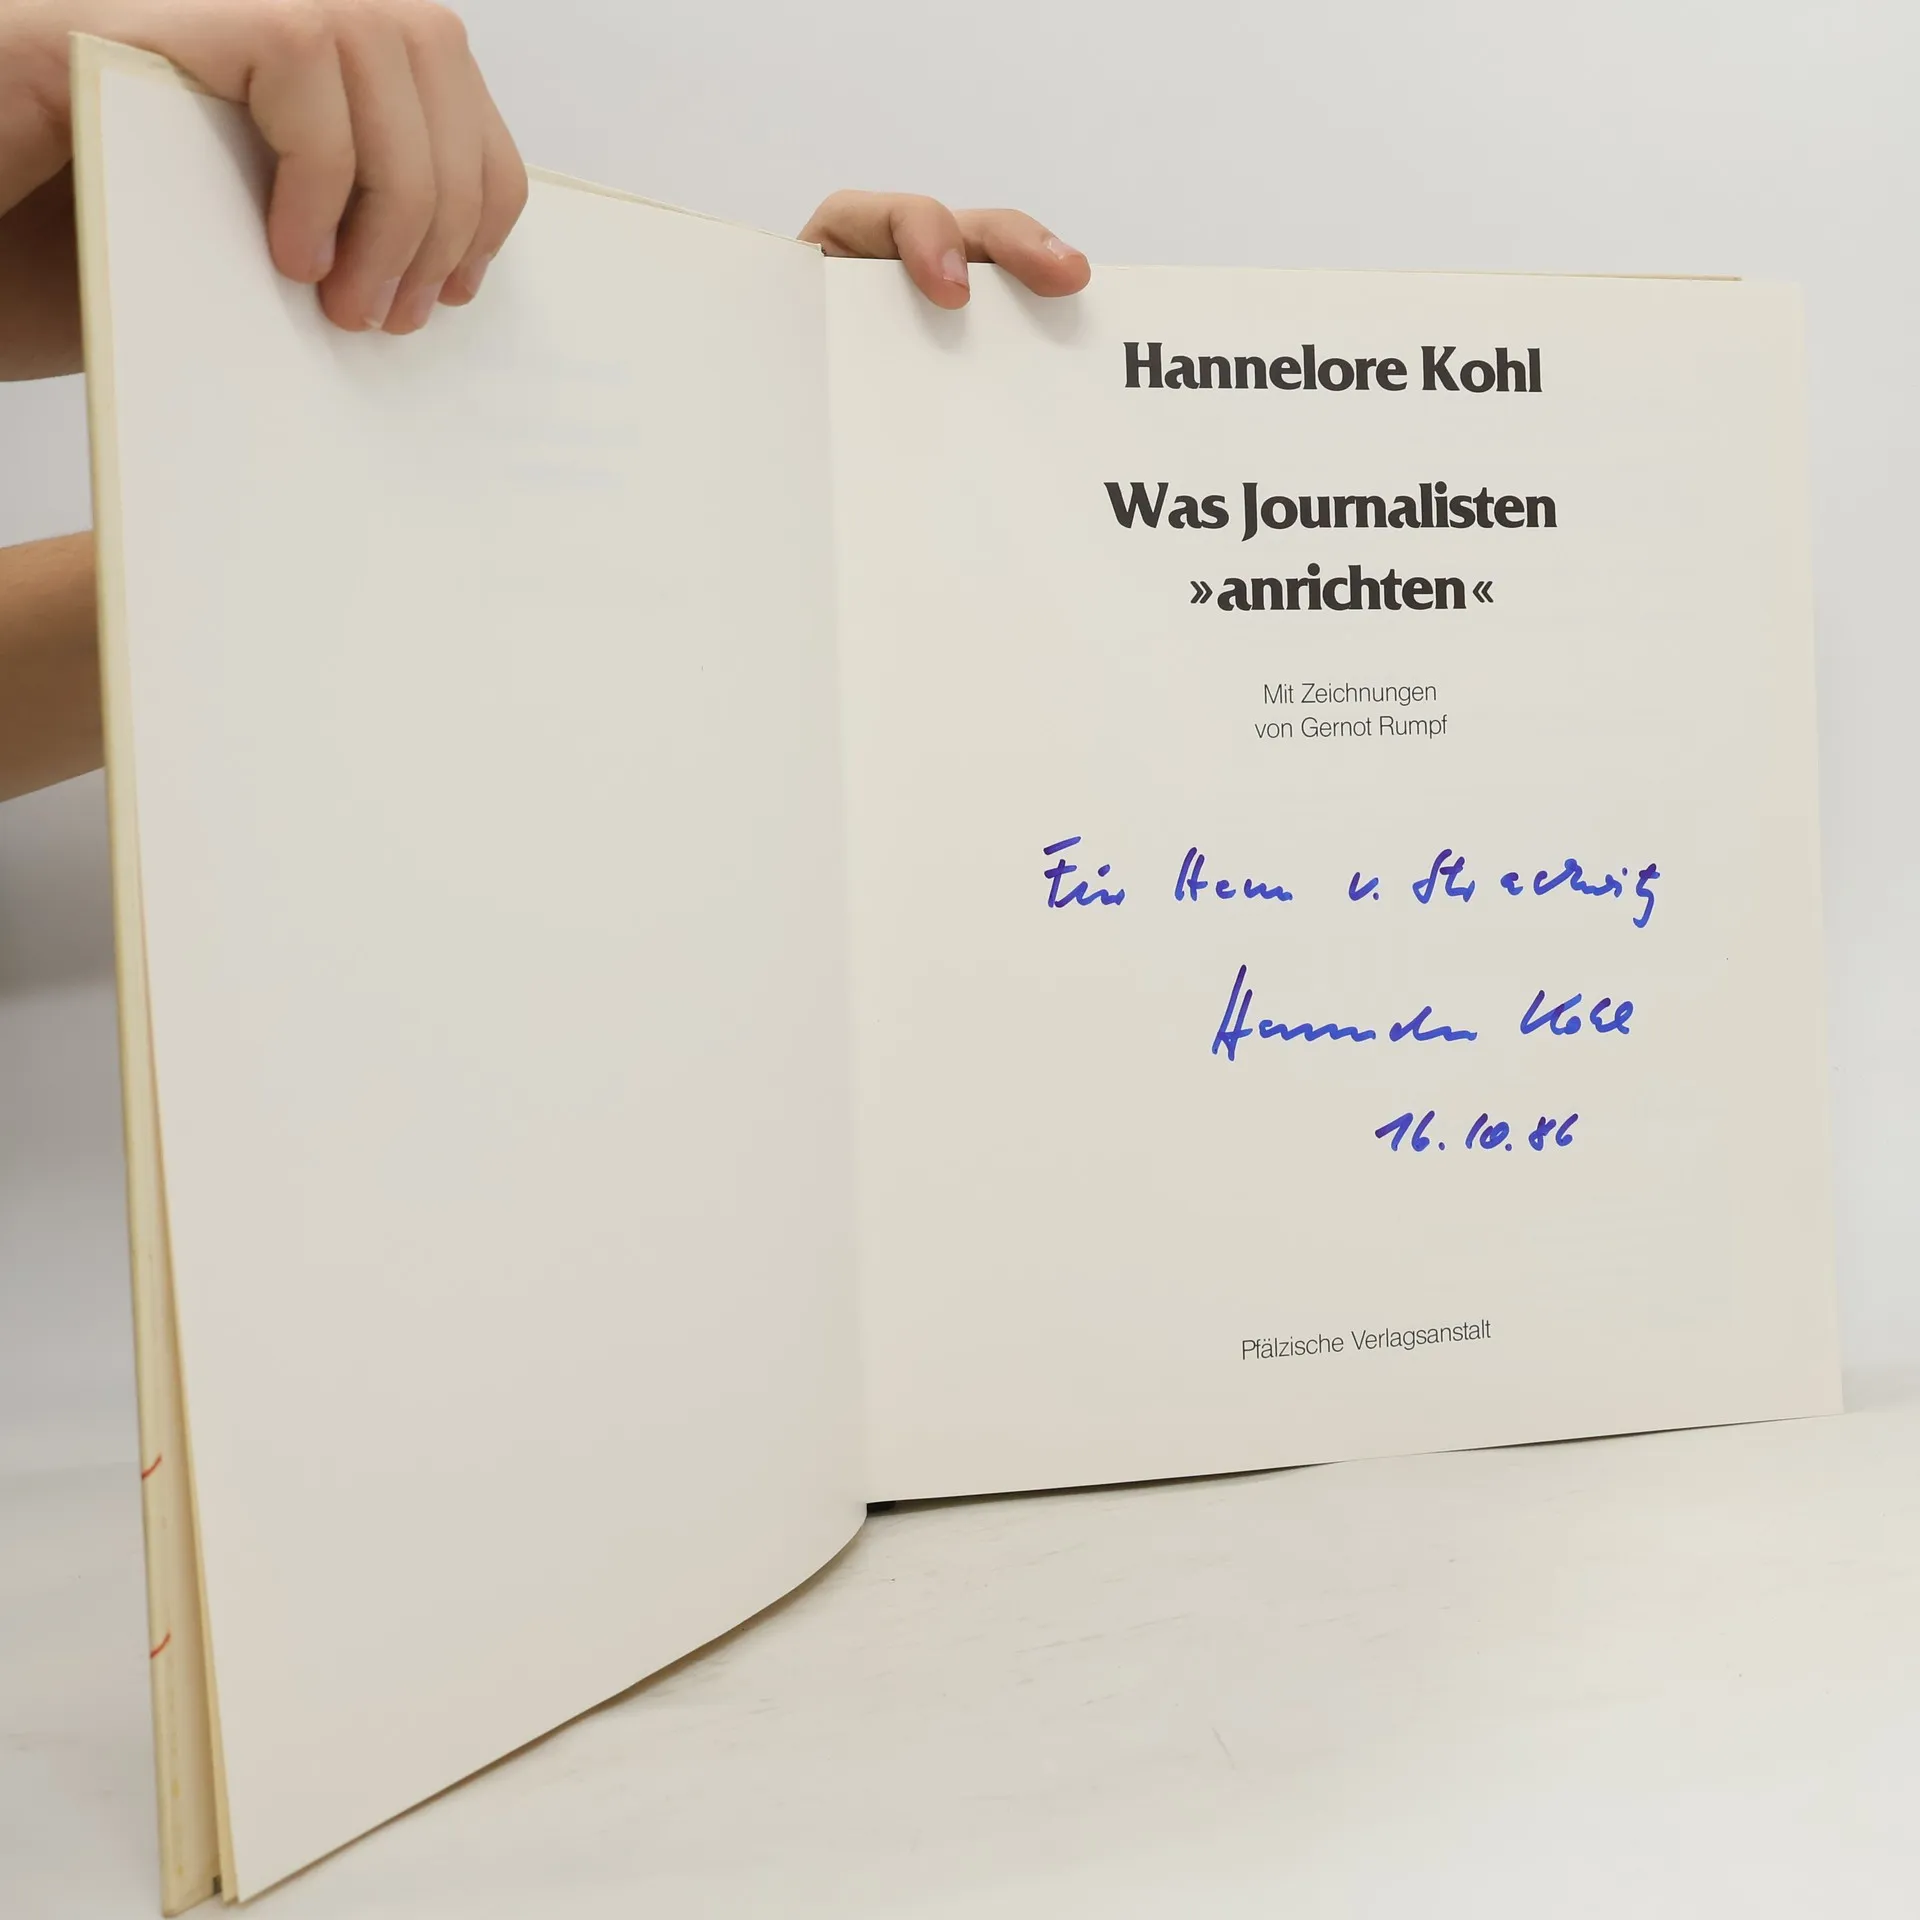 Hannelore Kohl
Was Journalisten
»anrichten«
Mit Zeichnungen
von Gernot Rumpf
Für Herrn v. Strachwitz
Hannelore Kohl
16.10.86
Pfälzische Verlagsanstalt